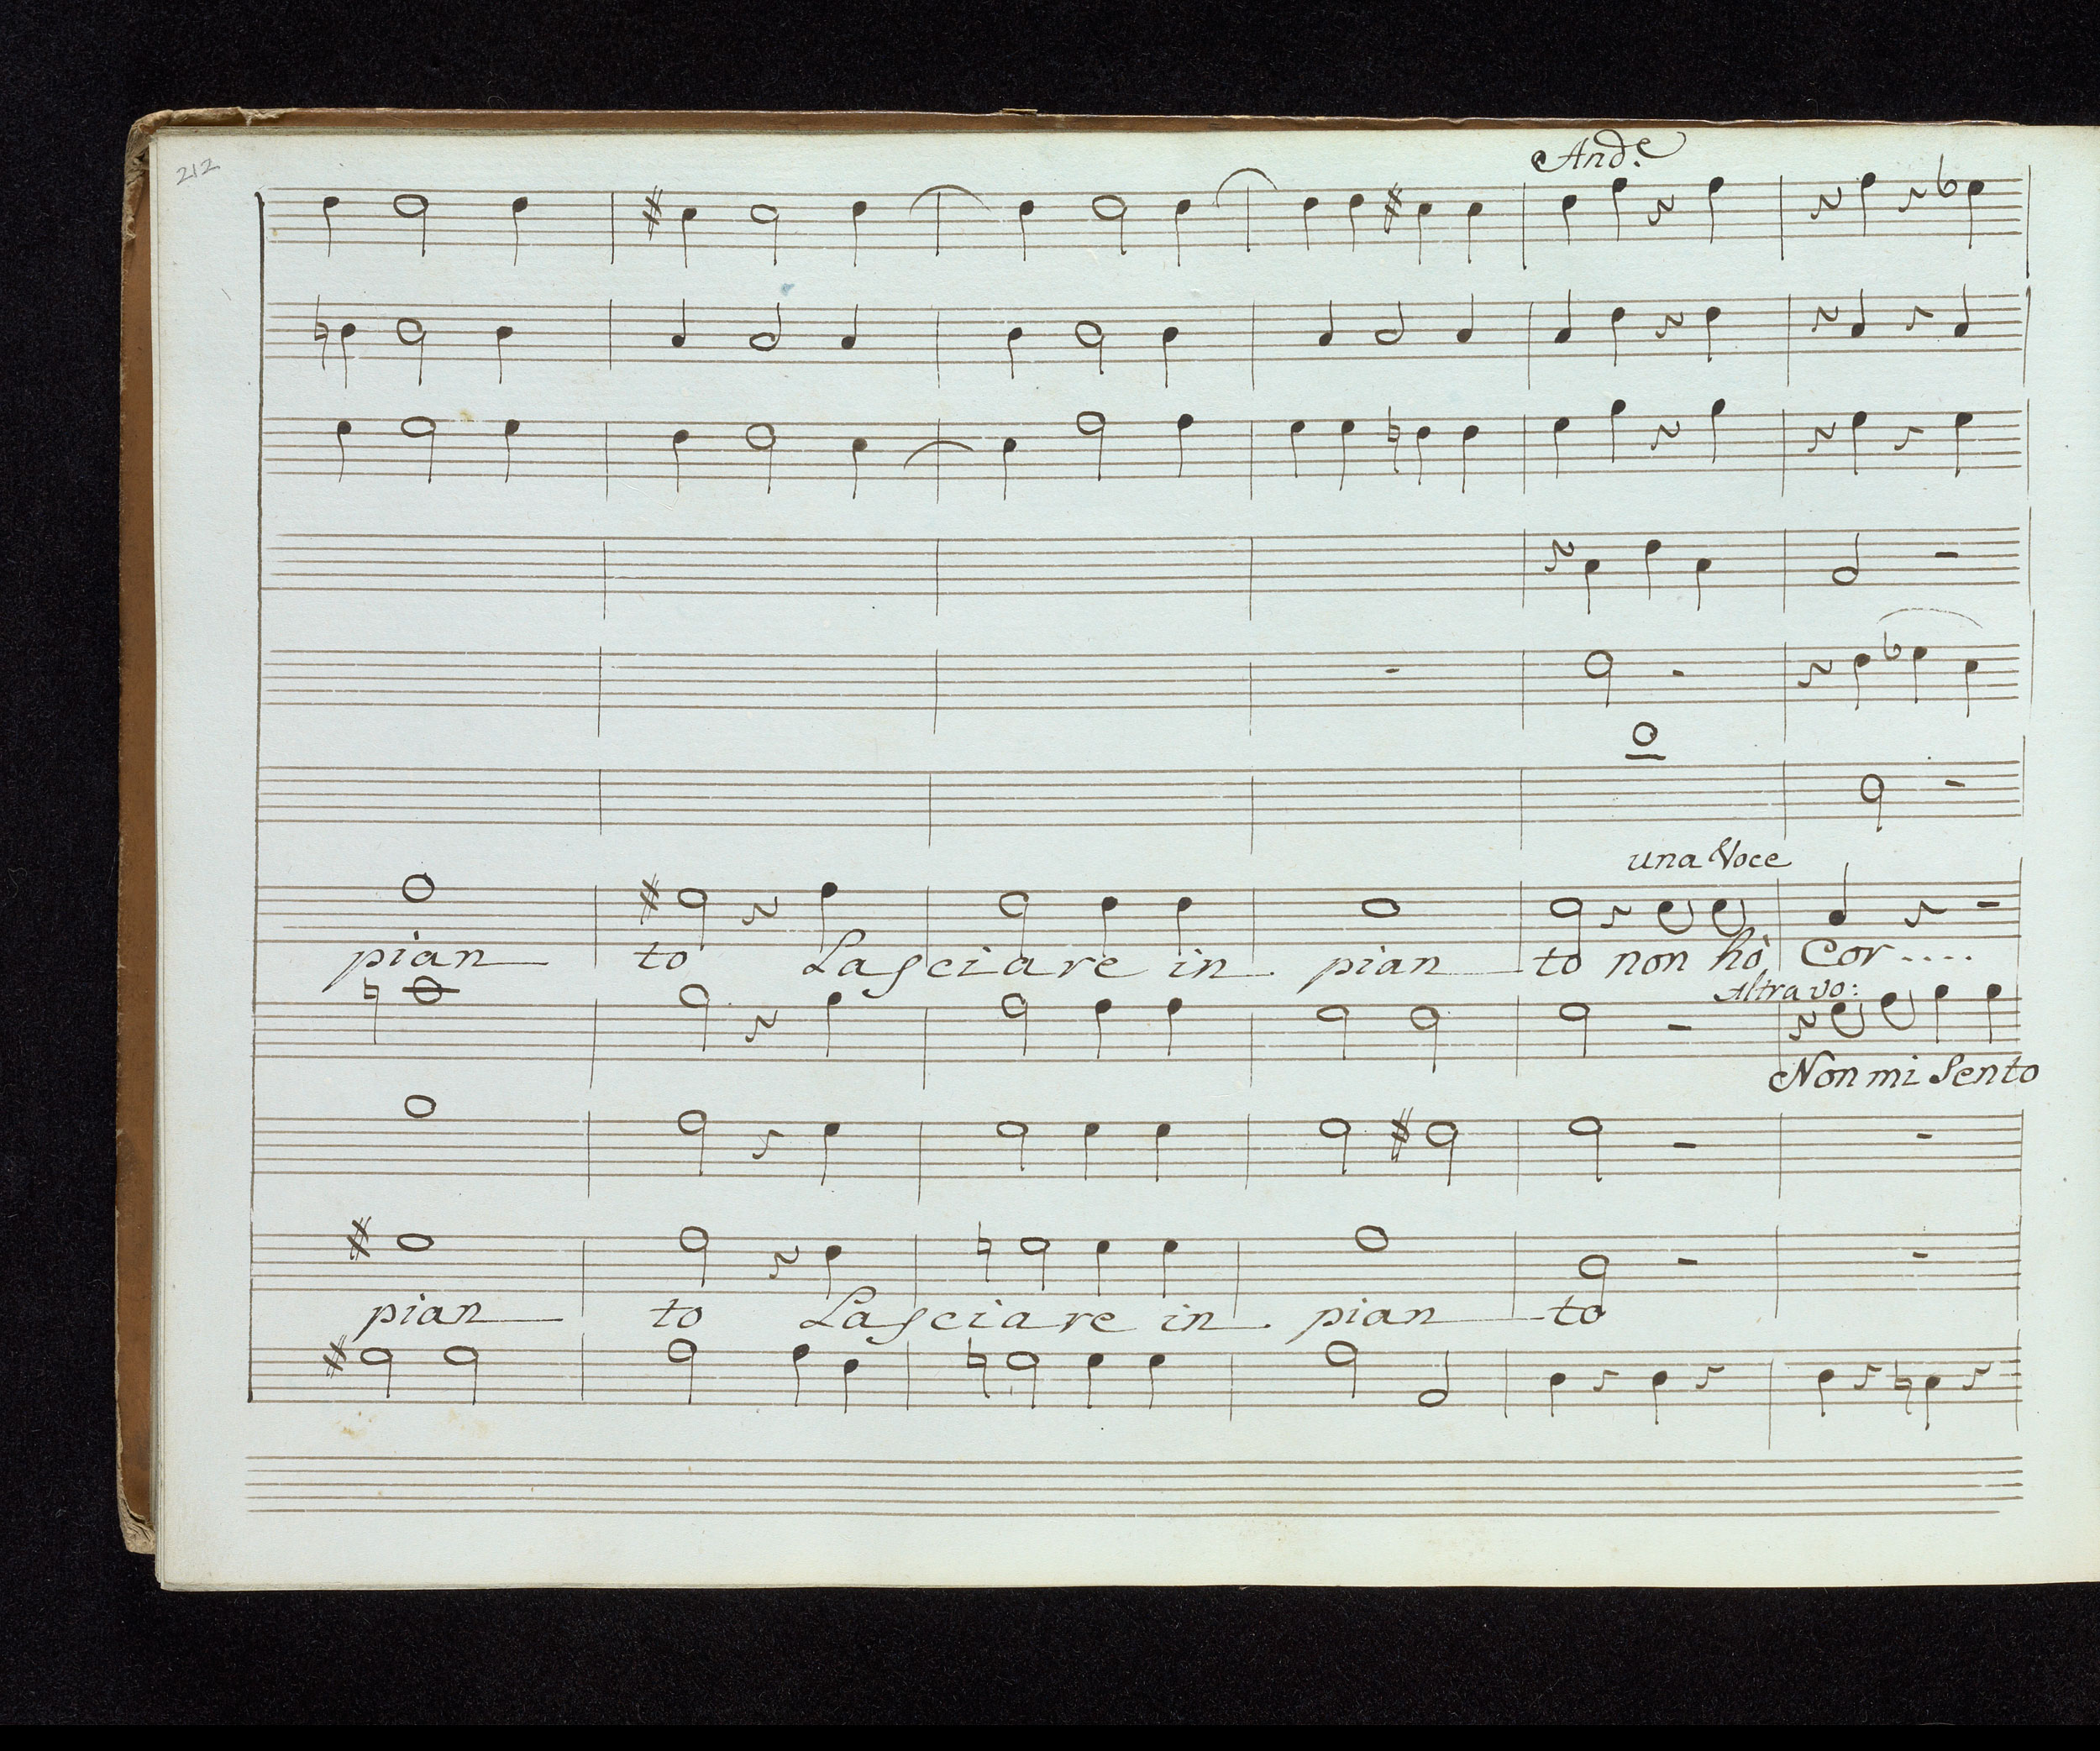 212
And.e
una Voce
pian to Lasciare in pian to non hò Cor....
Altra vo:
Non mi Sento
pian to Lasciare in pian to